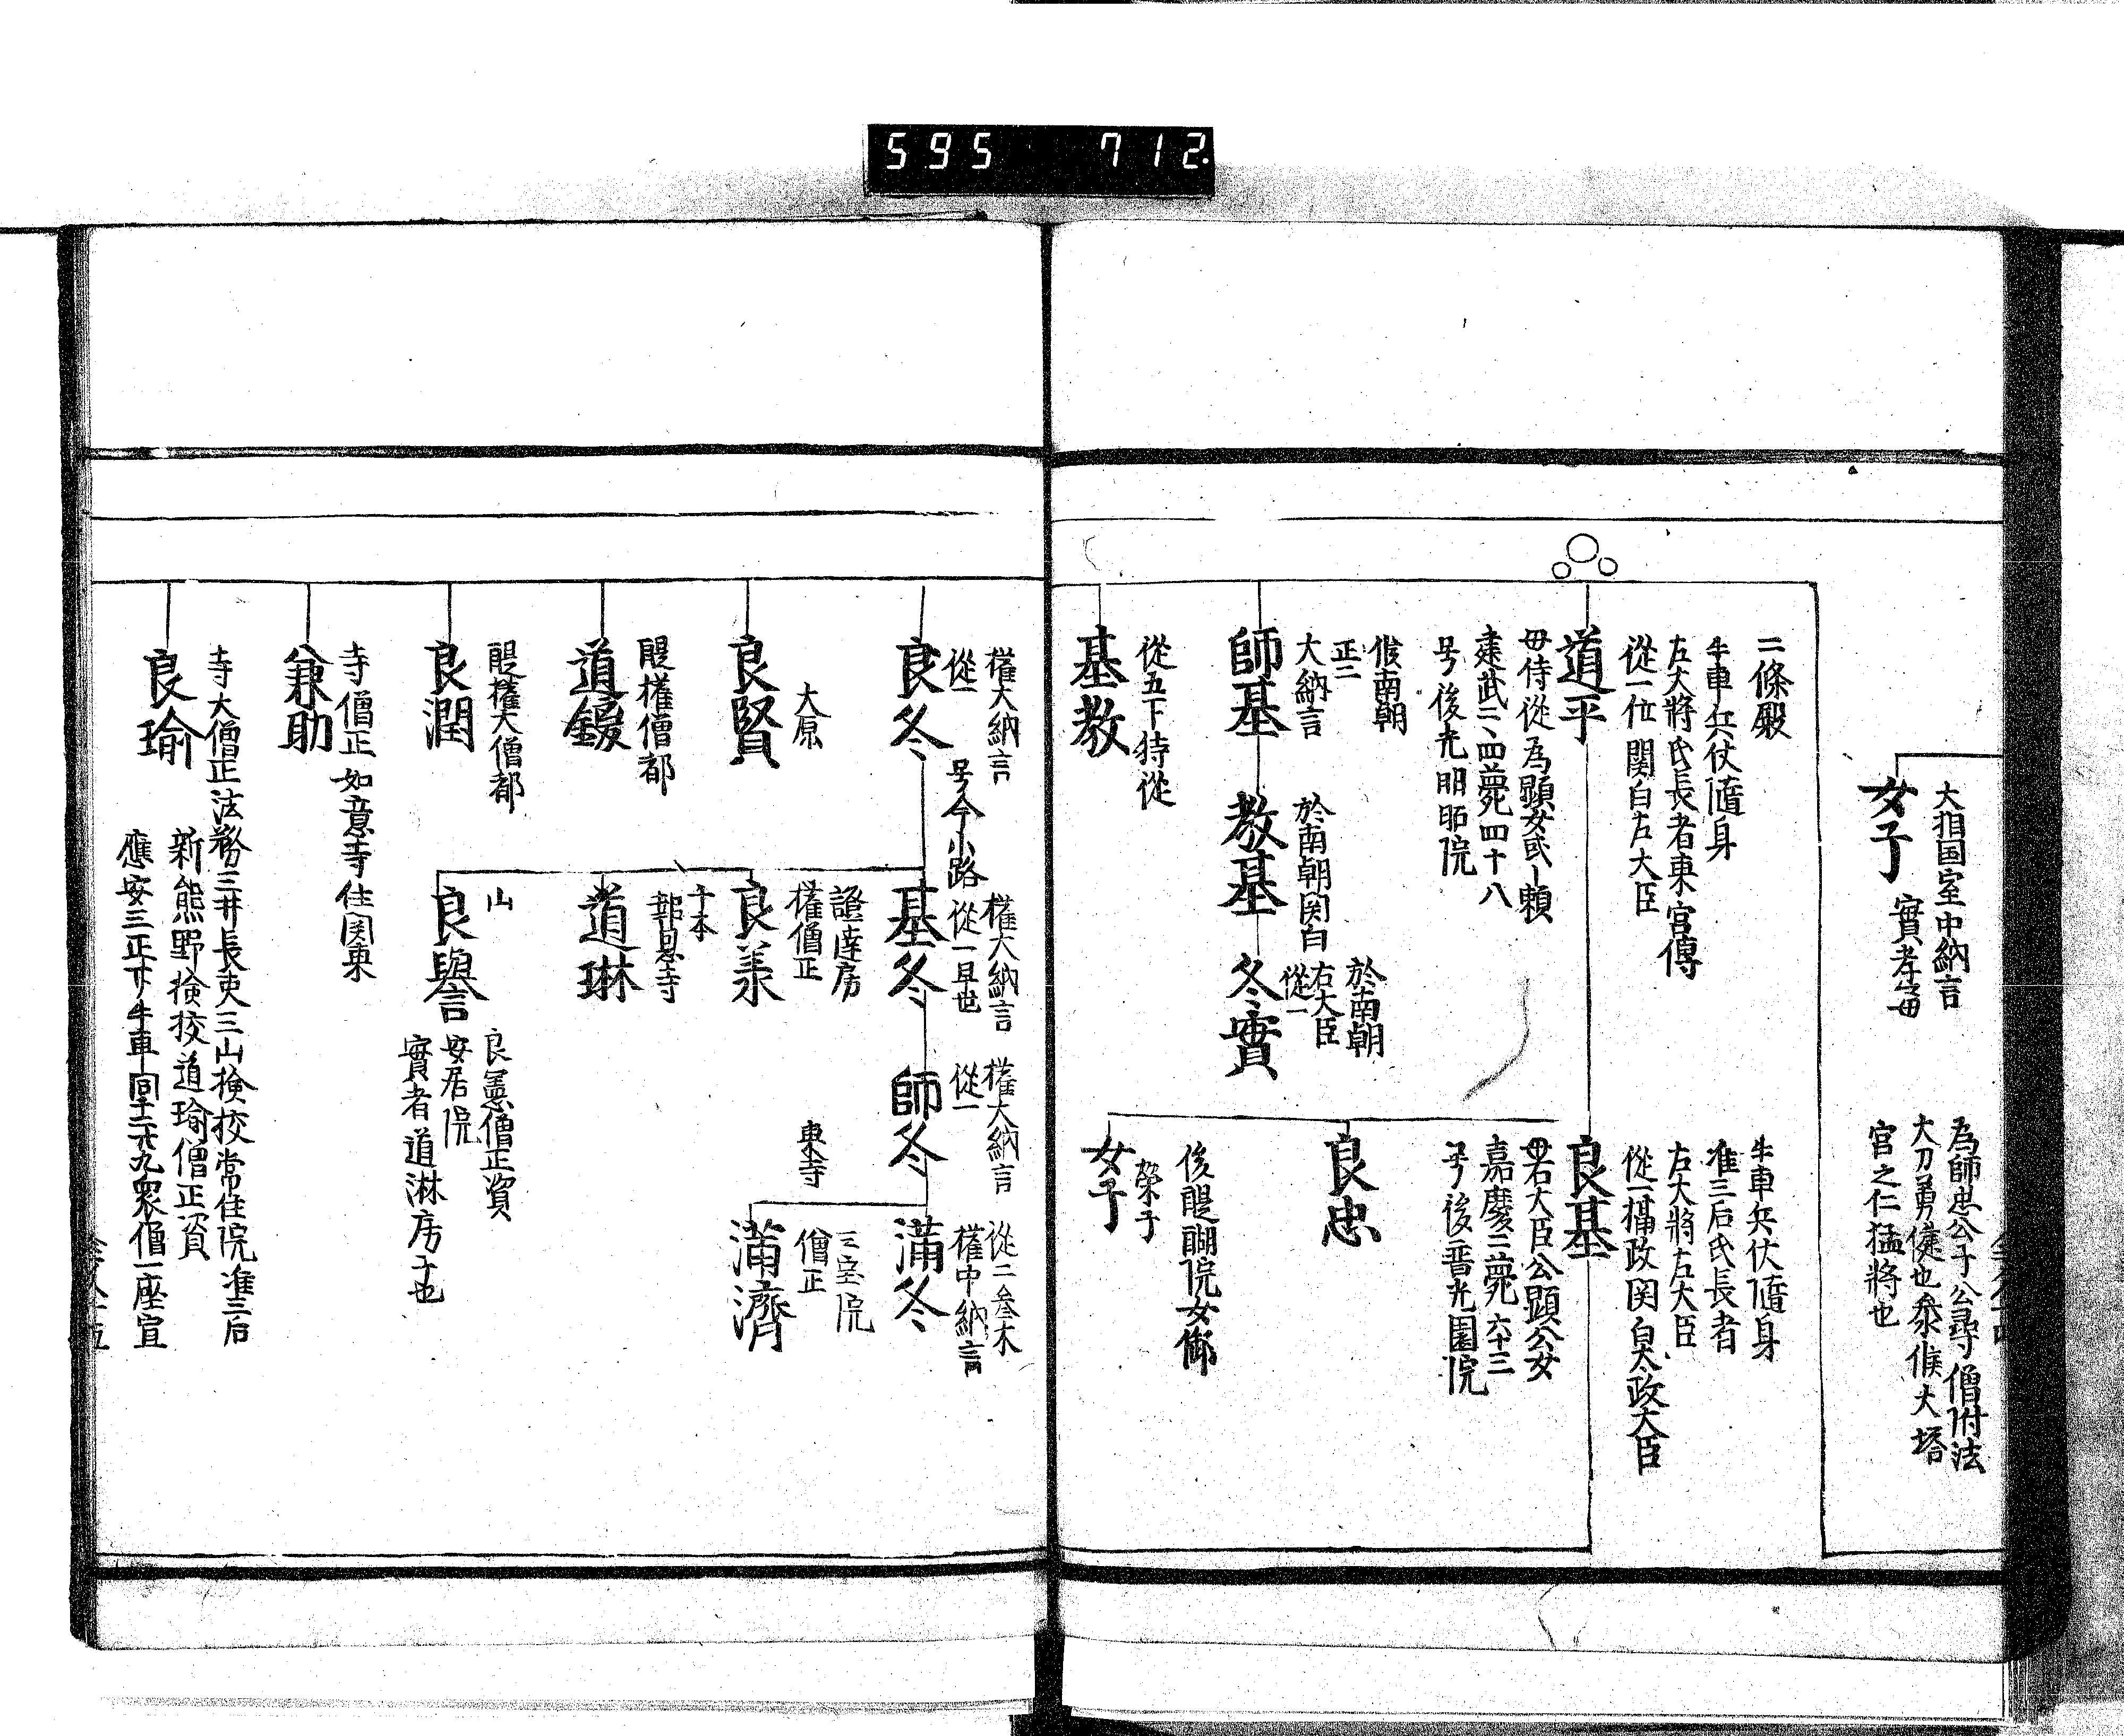 595 712.
大相国室中納言
女子
實孝母
為師忠公子公尋僧附法
大刀勇健也参候大塔
宮之仁猛將也
二條殿
牛車兵仗隨身
左大將氏長者東宮傅
従一位関白左大臣
道平
毋侍従為顕女
建武二、四薨四十八
号後光明昭院
牛車兵仗隨身
准三后氏長者
左大將左大臣
従一攝政関白太政大臣
良基
毋右大臣公顕公女
嘉慶三薨六十三
号後普光園院
良忠
後醍醐院女御
榮子
女子
候南朝
正二
大納言
師基
於南朝関白
教基
於南朝
右大臣
従一
冬實
従五下侍従
基教
權大納言
従一
良冬
号今小路
權大納言
従一早世
基冬
權大納言
従一
師冬
従二参木
權中納言
満冬
東寺
三宝院
僧正
満濟
大原
良賢
證達房
權僧正
良義
醍權僧都
道鍐
千本
釋恩寺
道琳
醍權大僧都
良潤
山
良譽
良憲僧正資
安居院
實者道淋房子也
寺僧正如意寺住関東
兼助
寺大僧正法務三井長吏三山検挍常住院准三后
良瑜
新熊野検挍道瑜僧正資
應安三正下牛車同十二廿九衆僧一座宣